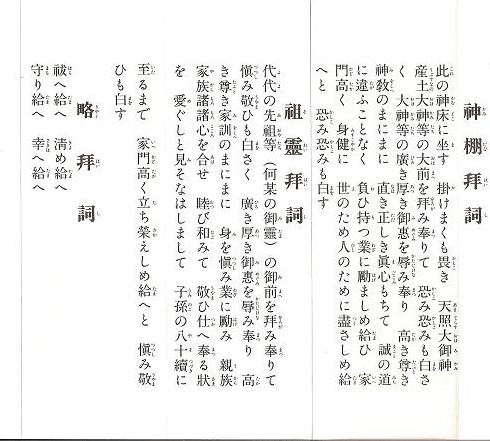 神棚拝詞
此の神床に坐す　掛けまくも畏き　天照大御神
産土大神等の大前を拝み奉りて　恐み恐みも白さ
く　大神等の廣き厚き御惠を辱み奉り　高き尊き
神教のまにまに　直き正しき眞心もちて　誠の道
に違ふことなく　負ひ持つ業に励ましめ給ひ　家
門高く　身健に　世のため人のために盡さしめ給
へと　恐み恐みも白す
祖靈拝詞
代代の先祖等（何某の御靈）の御前を拝み奉りて
愼み敬ひも白さく　廣き厚き御惠を辱み奉り　高
き尊き家訓のまにまに　身を愼み業に励み　親族
家族諸諸心を合せ　睦び和みて　敬ひ仕へ奉る狀
を　愛ぐしと見そなはしまして　子孫の八十續に
至るまで　家門高く立ち榮えしめ給へと　愼み敬
ひも白す
略拝詞
祓へ給へ　清め給へ
守り給へ　幸へ給へ